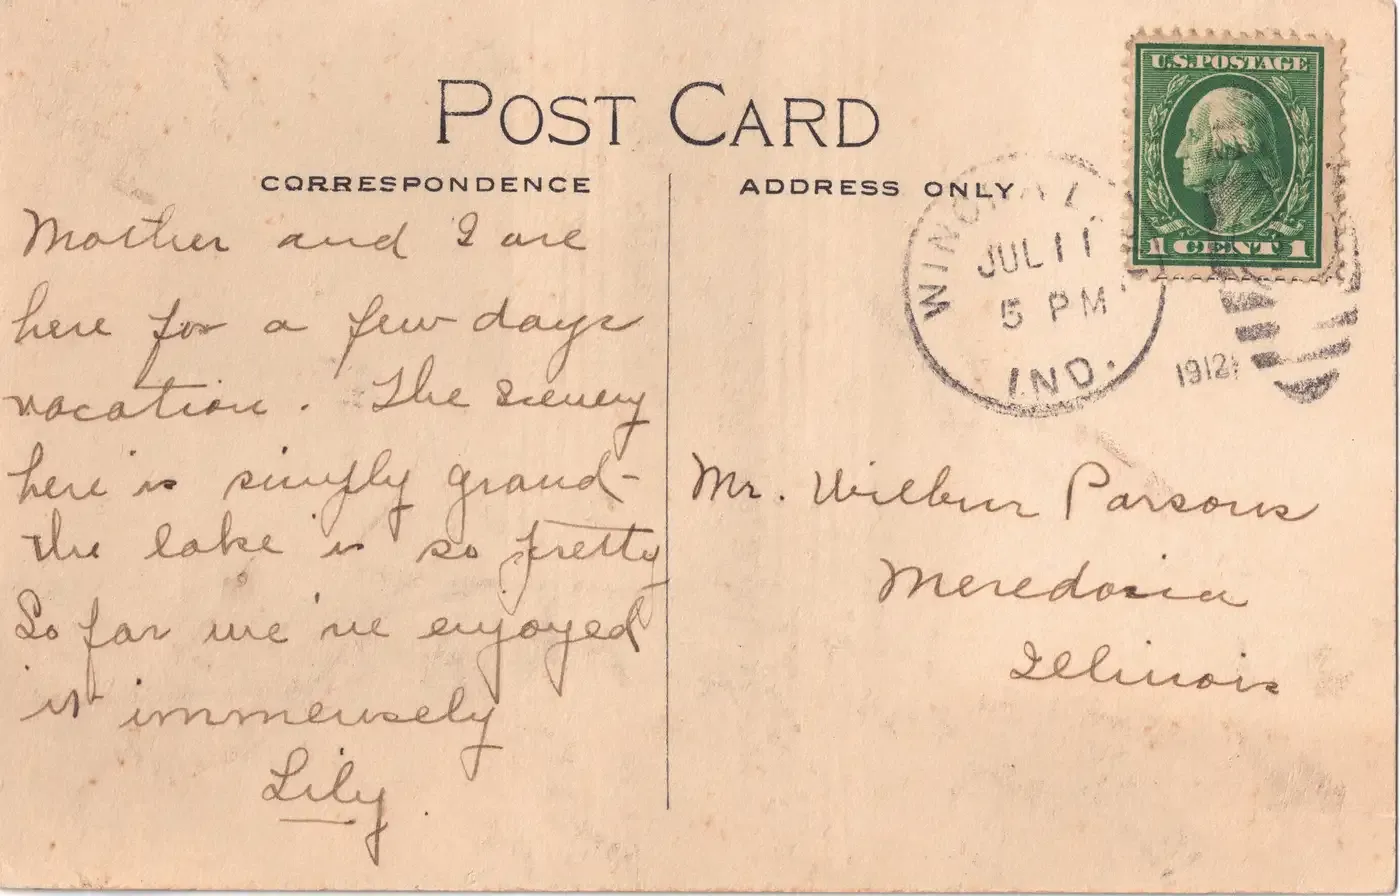 POST CARD
CORRESPONDENCE
ADDRESS ONLY
Mother and I are
here for a few days
vacation. The scenery
here is simply grand-
the lake is so pretty
So far we've enjoyed
it immensely
Lily.
U.S. POSTAGE
1 CENT 1
JUL 11
5 PM
IND.
1912
Mr. Wilbur Parsons
Meredosia
Illinois